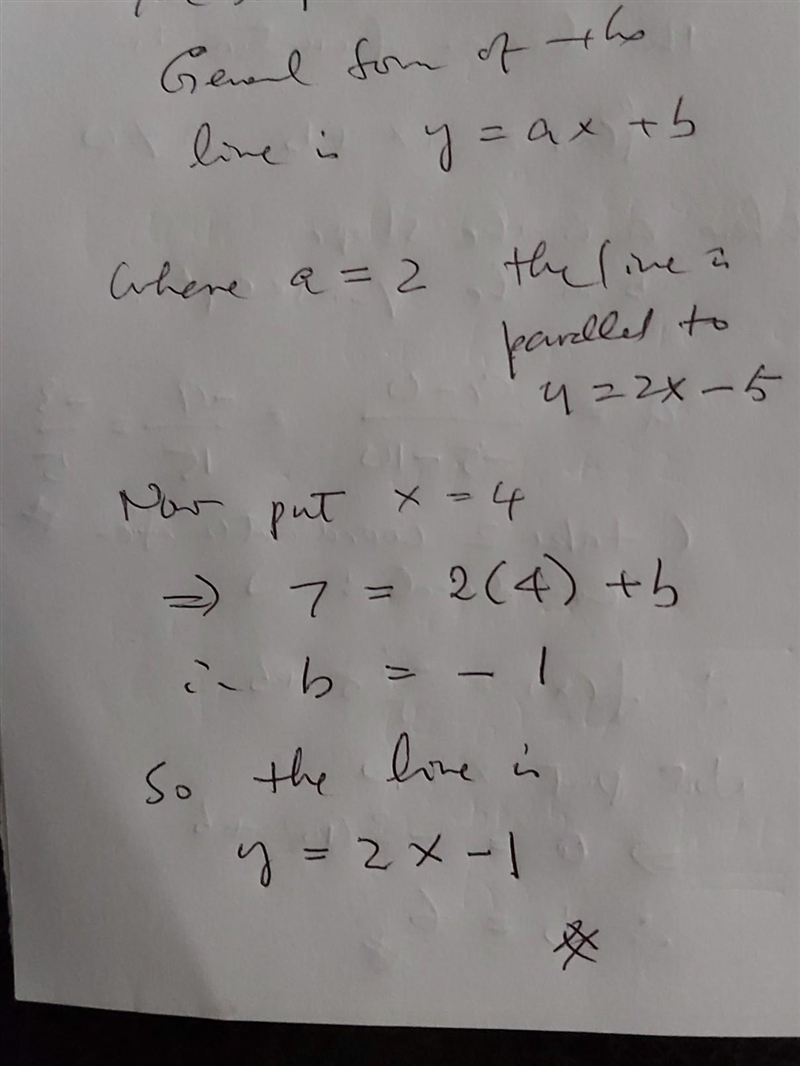 General form of the
line is y = ax + b
where a = 2 the line is
parallel to
y = 2x - 5
Now put x = 4
⇒ 7 = 2(4) + b
∴ b = - 1
So the line is
y = 2x - 1